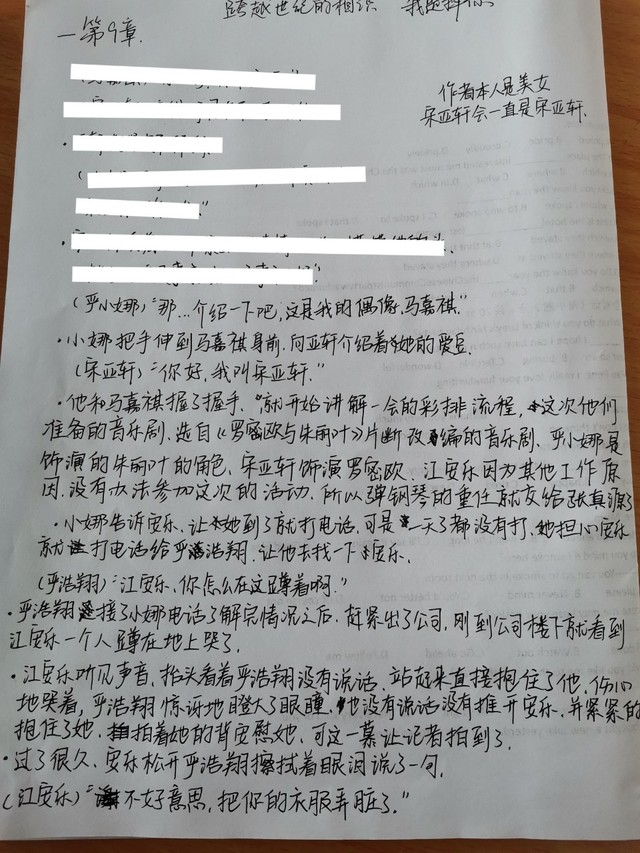 跨越世纪的相识 我选择你
一第9章.
作者本人是美女
宋亚轩会一直是宋亚轩.
(乎小娜):"那…介绍一下吧,这是我的偶像,马嘉祺."
·小娜把手伸到马嘉祺身前.向亚轩介绍着她的爱豆.
(宋亚轩):"你好,我叫宋亚轩."
·他和马嘉祺握了握手、就开始讲解一会的彩排流程,这次他们
准备的音乐剧、选自《罗密欧与朱丽叶》片断改编的音乐剧、乎小娜是
饰演的朱丽叶的角色、宋亚轩饰演罗密欧.江安乐因为其他工作原
因.没有办法参加这次的活动.所以弹钢琴的重任就交给张真源了
·小娜告诉安乐、让她到了就打电话,可是一天了都没有打、她担心安乐
就打电话给乎浩翔.让他去找一下安乐.
(乎浩翔):"江安乐、你怎么在这蹲着啊."
·乎浩翔接了小娜电话了解完情况之后.赶紧出了公司,刚到公司楼下就看到
江安乐一个人蹲在地上哭了.
·江安乐听见声音、抬头看着乎浩翔没有说话.站起来直接抱住了他,伤心
地哭着,乎浩翔惊讶地瞪大了眼瞳、他没有说话没有推开安乐.并紧紧的
抱住了她、拍着她的背安慰她、可这一幕让记者拍到了.
·过了很久、安乐松开乎浩翔擦拭着眼泪说了一句.
(江安乐):"不好意思,把你的衣服弄脏了."